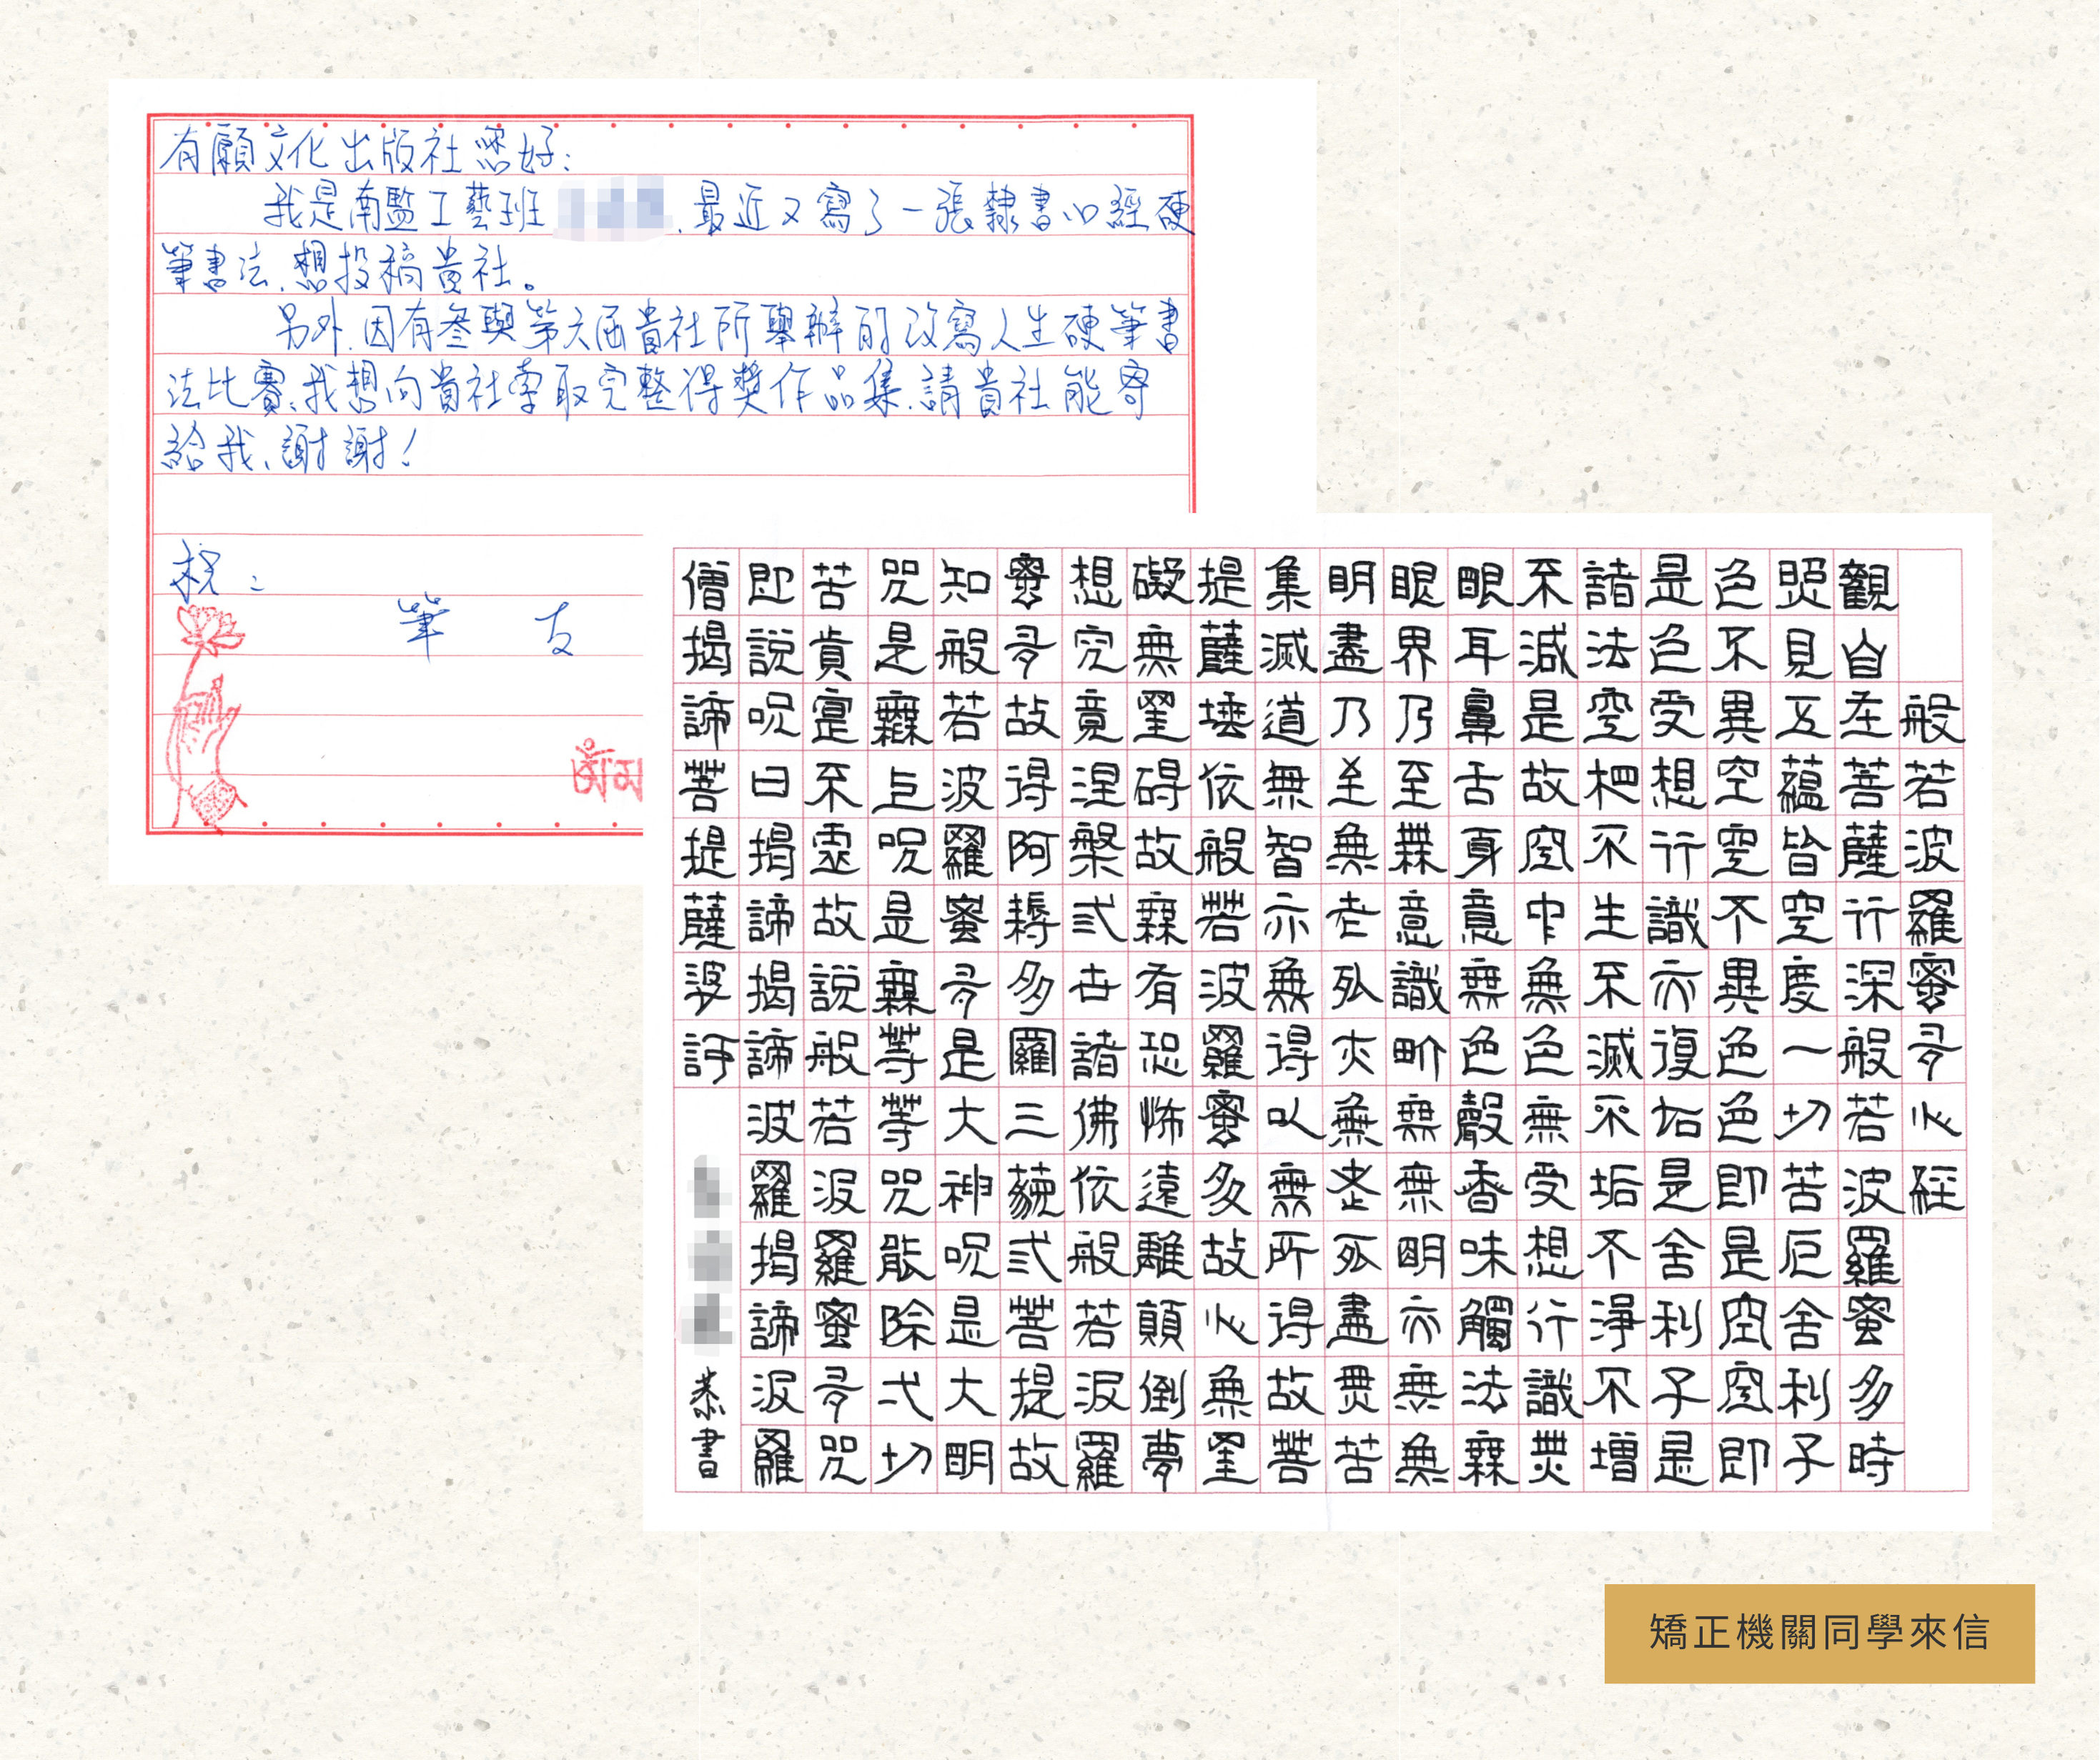 有願文化出版社您好:
我是南監工藝班.最近又寫了一張隸書心經硬
筆書法.想投稿貴社。
另外.因有參與第六屆貴社所舉辦的改寫人生硬筆書
法比賽.我想向貴社索取完整得獎作品集.請貴社能寄
給我.謝謝!
祝:
筆 友
般若波羅蜜多心經
觀自在菩薩行深般若波羅蜜多時
照見五蘊皆空度一切苦厄舍利子
色不異空空不異色色即是空空即
是色受想行識亦復如是舍利子是
諸法空相不生不滅不垢不淨不增
不減是故空中無色無受想行識無
眼耳鼻舌身意無色聲香味觸法無
眼界乃至無意識界無無明亦無無
明盡乃至無老死亦無老死盡無苦
集滅道無智亦無得以無所得故菩
提薩埵依般若波羅蜜多故心無罣
礙無罣碍故無有恐怖遠離顛倒夢
想究竟涅槃弎世諸佛依般若波羅
蜜多故得阿耨多羅三藐弎菩提故
知般若波羅蜜多是大神呪是大明
咒是無上呪是無等等咒能除弌切
苦真實不虛故說般若波羅蜜多咒
即說呪曰揭諦揭諦波羅揭諦波羅
僧揭諦菩提薩婆訶
恭書
矯正機關同學來信